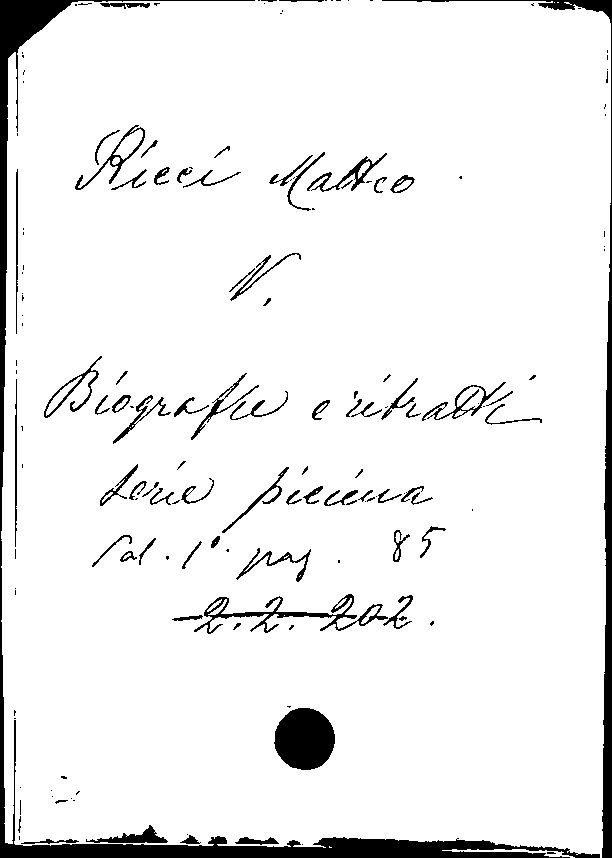 Ricci Matteo
V.
Biografie e ritratti
serie picena
Vol. 1º. pag. 85
2.2.202.